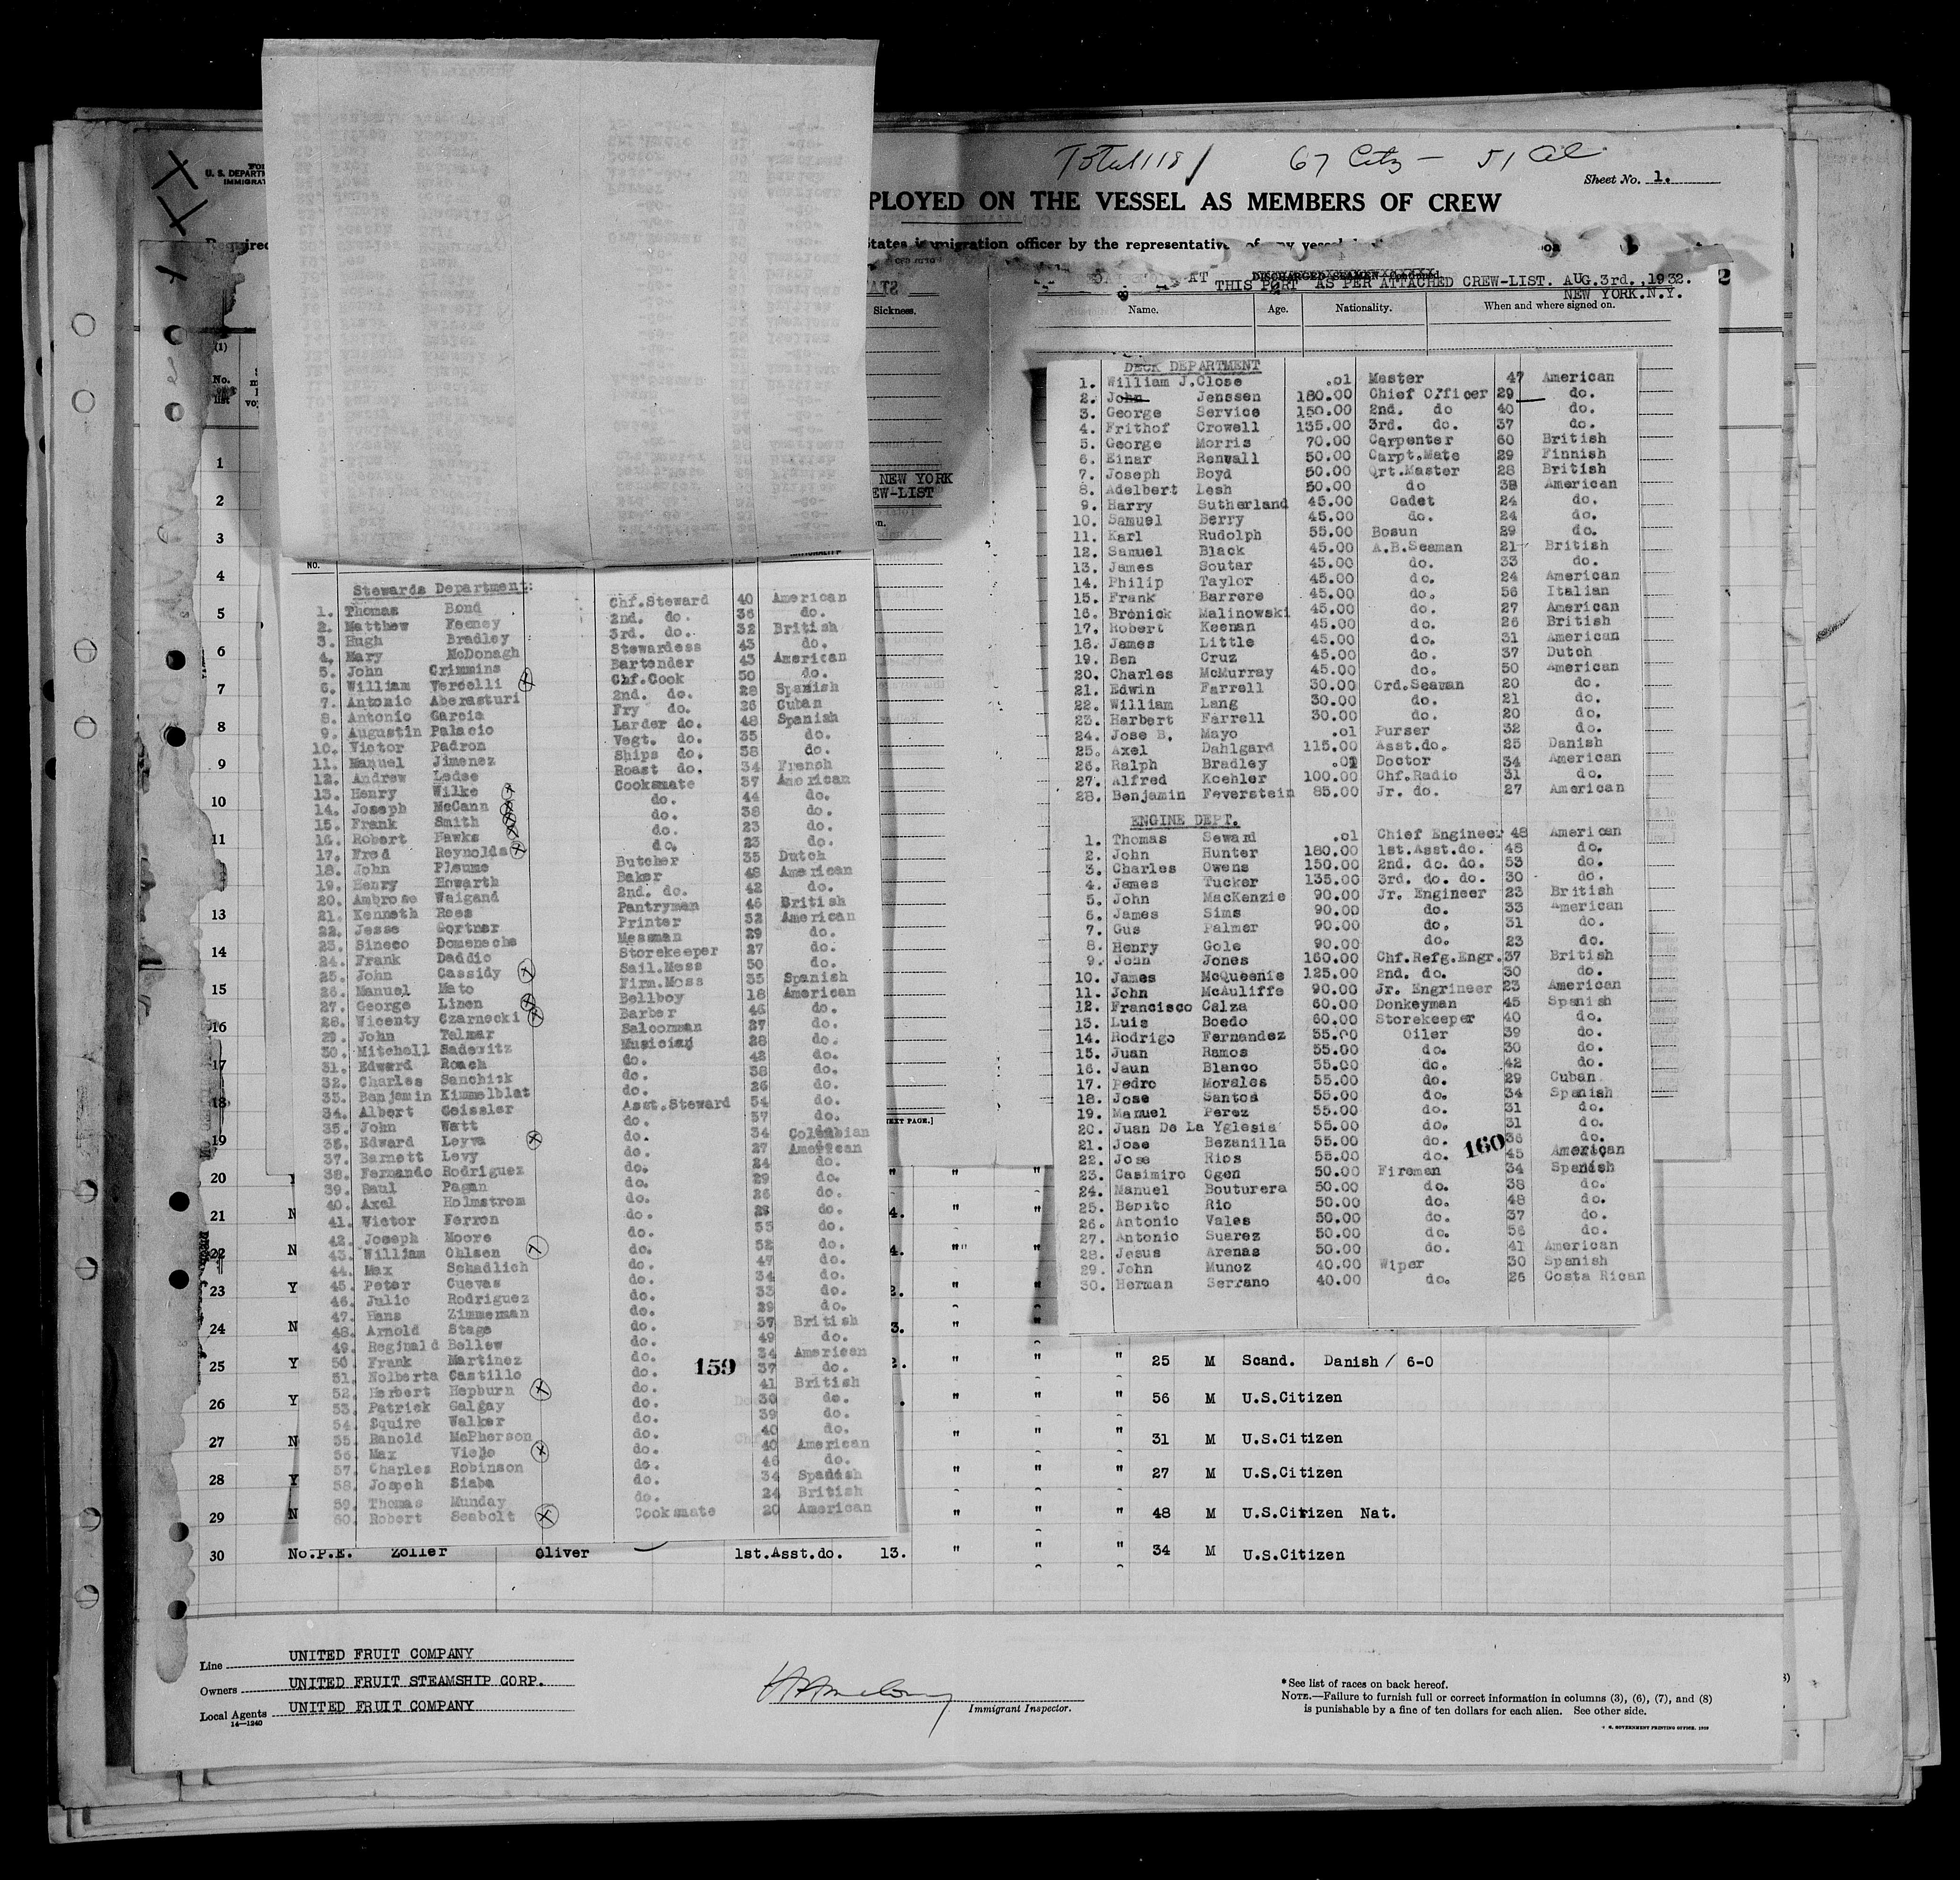 Total 118 / 67 Citz - 51 Al
Sheet No. 1.
U. S. DEPART
IMMIGRAT
PLOYED ON THE VESSEL AS MEMBERS OF CREW
Required
States immigration officer by the representative of any vessel
AT DISCHARGED SEAMEN
THIS PORT AS PER ATTACHED CREW-LIST. AUG.3rd.,1932.
NEW YORK.N.Y.
2
Sickness.
Name. Age. Nationality. When and where signed on.
(1)
No.
list
NEW YORK
EW-LIST
NO.
Stewards Department:
1. Thomas Bond Chf.Steward 40 American
2. Matthew Feeney 2nd. do. 36 do.
3. Hugh Bradley 3rd. do. 32 British
4. Mary McDonagh Stewardess 43 do.
5. John Crimmins Bartender 43 American
6. William Vercelli Chf.Cook 50 do.
7. Antonio Aberasturi 2nd. do. 28 Spanish
8. Antonio Garcia Fry do. 26 Cuban
9. Augustin Palacio Larder do. 48 Spanish
10. Victor Padron Vegt. do. 35 do.
11. Manuel Jimenez Ships do. 38 do.
12. Andrew Ledse Roast do. 34 French
13. Henry Wilke Cooksmate 37 American
14. Joseph McCann do. 44 do.
15. Frank Smith do. 38 do.
16. Robert Hawks do. 23 do.
17. Fred Reynolds do. 23 do.
18. John Pleume Butcher 35 Dutch
19. Henry Howarth Baker 48 American
20. Ambrose Weigand 2nd. do. 42 do.
21. Kenneth Rees Pantryman 46 British
22. Jesse Gortner Printer 32 American
23. Sineco Domenechs Messman 29 do.
24. Frank Daddio Storekeeper 27 do.
25. John Cassidy Sail.Mess 50 do.
26. Manuel Mato Firm.Mess 35 Spanish
27. George Linen Bellboy 18 American
28. Wicenty Czarnecki Barber 46 do.
29. John Talmar Saloonman 27 do.
30. Mitchell Sadewitz Musician 28 do.
31. Edward Roach do. 42 do.
32. Charles Sanchick do. 38 do.
33. Benjamin Kimmelblat do. 26 do.
34. Albert Geissler Asst.Steward 54 do.
35. John Watt do. 57 do.
36. Edward Leyva do. 34 Colombian
37. Barnett Levy do. 27 American
38. Fernando Rodriguez do. 24 do.
39. Raul Pagan do. 29 do.
40. Axel Holmstrom do. 26 do.
41. Victor Ferron do. 28 do.
42. Joseph Moore do. 53 do.
43. William Ohlsen do. 52 do.
44. Max Schadlich do. 47 do.
45. Peter Cuevas do. 34 do.
46. Julio Rodriguez do. 33 do.
47. Hans Zimmerman do. 29 do.
48. Arnold Stage do. 37 British
49. Reginald Bellew do. 49 do.
50. Frank Martinez do. 34 American
51. Nolberta Castillo do. 37 do.
52. Herbert Hepburn do. 41 British
53. Patrick Galgay do. 30 do.
54. Squire Walker do. 39 do.
55. Ranold McPherson do. 40 do.
56. Max Viejo do. 40 American
57. Charles Robinson do. 46 do.
58. Jospeh Siaba do. 34 Spanish
59. Thomas Munday do. 24 British
60. Robert Seabolt Cooksmate 20 American
159
DECK DEPARTMENT
1. William J.Close .01 Master 47 American
2. John Jenssen 180.00 Chief Officer 29 do.
3. George Service 150.00 2nd. do 40 do.
4. Frithof Crowell 135.00 3rd. do. 37 do.
5. George Morris 70.00 Carpenter 60 British
6. Einar Renvall 50.00 Carpt.Mate 29 Finnish
7. Joseph Boyd 50.00 Qrt.Master 28 British
8. Adelbert Lesh 50.00 do 38 American
9. Harry Sutherland 45.00 Cadet 24 do.
10. Samuel Berry 45.00 do. 24 do.
11. Karl Rudolph 55.00 Bosun 29 do.
12. Samuel Black 45.00 A.B.Seaman 21 British
13. James Soutar 45.00 do. 33 do.
14. Philip Taylor 45.00 do. 24 American
15. Frank Barrere 45.00 do. 56 Italian
16. Bronick Malinowski 45.00 do. 27 American
17. Robert Keenan 45.00 do. 26 British
18. James Little 45.00 do. 31 American
19. Ben Cruz 45.00 do. 37 Dutch
20. Charles McMurray 45.00 do. 50 American
21. Edwin Farrell 30.00 Ord.Seaman 20 do.
22. William Lang 30.00 do. 21 do.
23. Harbert Farrell 30.00 do. 20 do.
24. Jose B. Mayo .01 Purser 32 do.
25. Axel Dahlgard 115.00 Asst.do. 25 Danish
26. Ralph Bradley .01 Doctor 34 American
27. Alfred Koehler 100.00 Chf.Radio 31 do.
28. Benjamin Feverstein 85.00 Jr. do. 27 American
ENGINE DEPT.
1. Thomas Seward .01 Chief Engineer 48 American
2. John Hunter 180.00 1st.Asst.do. 48 do.
3. Charles Owens 150.00 2nd. do. do. 53 do.
4. James Tucker 135.00 3rd. do. do. 30 do.
5. John MacKenzie 90.00 Jr. Engineer 23 British
6. James Sims 90.00 do. 33 American
7. Gus Palmer 90.00 do. 31 do.
8. Henry Gole 90.00 do. 23 do.
9. John Jones 160.00 Chf.Refg.Engr. 37 British
10. James McQueenie 125.00 2nd. do. 30 do.
11. John McAuliffe 90.00 Jr. Engrineer 23 American
12. Francisco Calza 60.00 Donkeyman 45 Spanish
13. Luis Boedo 60.00 Storekeeper 40 do.
14. Rodrigo Fernandez 55.00 Oiler 39 do.
15. Juan Ramos 55.00 do. 30 do.
16. Jaun Blanco 55.00 do. 42 do.
17. Pedro Morales 55.00 do. 29 Cuban
18. Jose Santos 55.00 do. 34 Spanish
19. Manuel Perez 55.00 do. 31 do.
20. Juan De La Yglesia 55.00 do. 31 do.
21. Jose Bezanilla 55.00 do. 36 do.
22. Jose Rios 55.00 do. 45 American
23. Casimiro Ogen 50.00 Firemen 34 Spanish
24. Manuel Bouturera 50.00 do. 38 do.
25. Benito Rio 50.00 do. 48 do.
26. Antonio Vales 50.00 do. 37 do.
27. Antonio Suarez 50.00 do. 56 do.
28. Jesus Arenas 50.00 do. 41 American
29. John Munoz 40.00 Wiper 30 Spanish
30. Herman Serrano 40.00 do. 26 Costa Rican
160
1
2
3
4
5
6
7
8
9
10
11
13
14
15
16
17
18
19
20 " " "
21 N 4. "
22 N 4. "
23 Y 2. " "
24 N 3. "
25 Y 2. " " " 25 M Scand. Danish / 6-0
26 Y " " " 56 M U.S.Citizen
27 N " " " 31 M U.S.Citizen
28 Y " " " 27 M U.S.Citizen
29 N " " " 48 M U.S.Citizen Nat.
30 No.P.E. Zoller Oliver 1st.Asst.do. 13. " " " 34 M U.S.Citizen
Line UNITED FRUIT COMPANY
Owners UNITED FRUIT STEAMSHIP CORP.
Local Agents UNITED FRUIT COMPANY
14-1240
Immigrant Inspector.
* See list of races on back hereof.
NOTE.—Failure to furnish full or correct information in columns (3), (6), (7), and (8)
is punishable by a fine of ten dollars for each alien. See other side.
GOVERNMENT PRINTING OFFICE. 1929